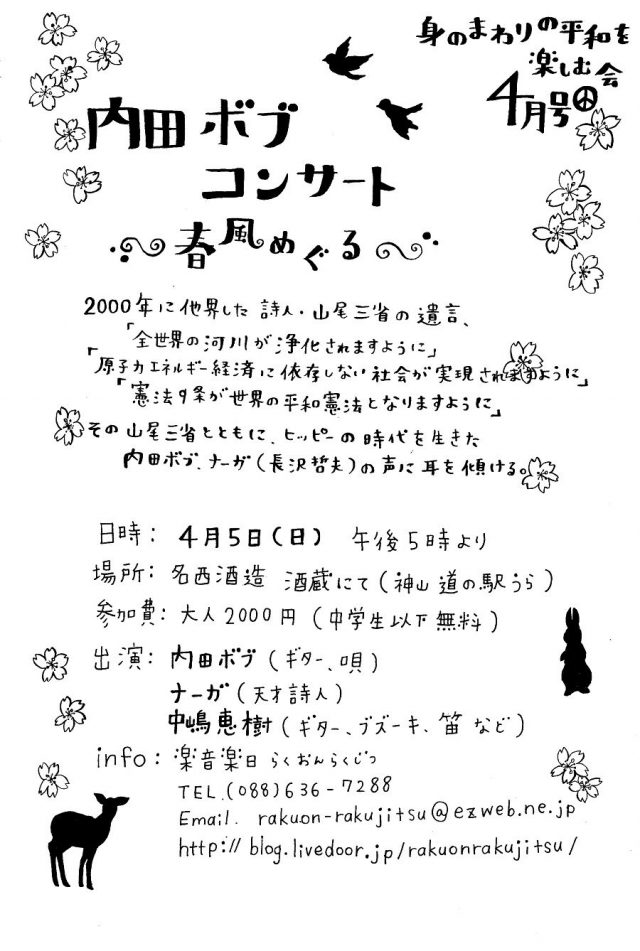 身のまわりの平和を
楽しむ会
4月号
内田ボブ
コンサート
春風めぐる
2000年に他界した 詩人・山尾三省の遺言、
「全世界の河川が浄化されますように」
「原子力エネルギー経済に依存しない社会が実現されますように」
「憲法9条が世界の平和憲法となりますように」
その山尾三省とともに、ヒッピーの時代を生きた
内田ボブ、ナーガ(長沢哲夫)の声に耳を傾ける。
日時: 4月5日(日) 午後5時より
場所: 名西酒造 酒蔵にて(神山 道の駅うら)
参加費: 大人2000円 (中学生以下無料)
出演: 内田ボブ(ギター、唄)
ナーガ(天才詩人)
中嶋恵樹(ギター、ブズーキ、笛 など)
info: 楽音楽日 らくおんらくじつ
TEL.(088)636-7288
Email. rakuon-rakujitsu@ezweb.ne.jp
http://blog.livedoor.jp/rakuonrakujitsu/